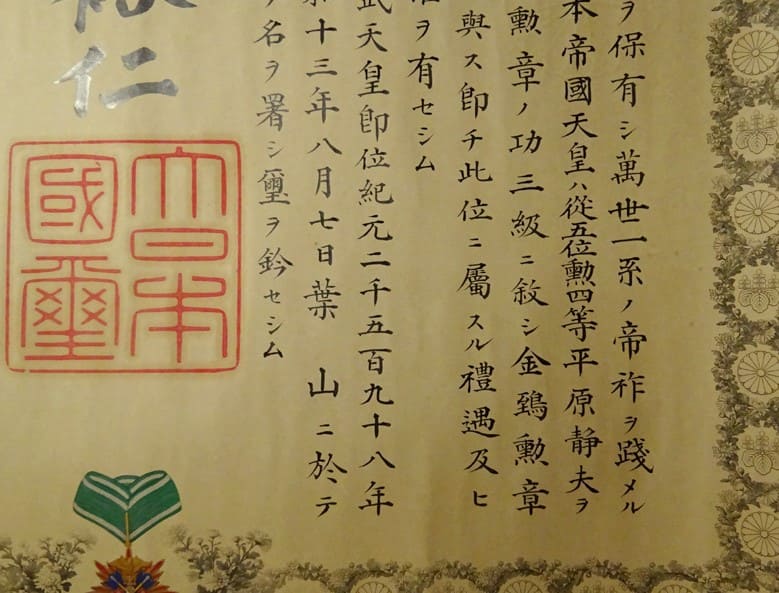 ヲ保有シ萬世一系ノ帝祚ヲ踐メル
本帝國天皇ハ從五位勲四等平原靜夫ヲ
勲章ノ功三級ニ敘シ金鵄勲章
與ス卽チ此位ニ屬スル禮遇及ヒ
ヲ有セシム
武天皇卽位紀元二千五百九十八年
十三年八月七日葉山ニ於テ
名ヲ署シ璽ヲ鈐セシム
裕仁
大日本
國璽